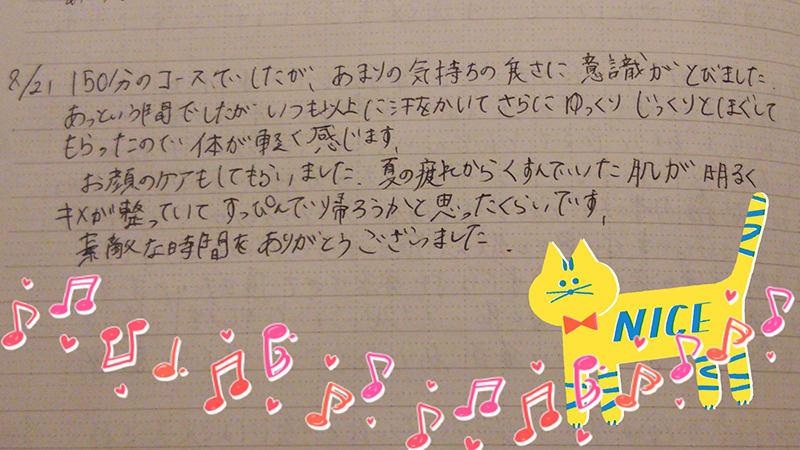 8/21 150分のコースでしたが、あまりの気持ちの良さに意識がとびました.
あっという間でしたがいつも以上に汗をかいてさらにゆっくりじっくりとほぐして
もらったので体が軽く感じます.
お顔のケアもしてもらいました.夏の疲れからくすんでいた肌が明るく
キメが整っていてすっぴんで帰ろうかと思ったくらいです.
素敵な時間をありがとうございました.
NICE